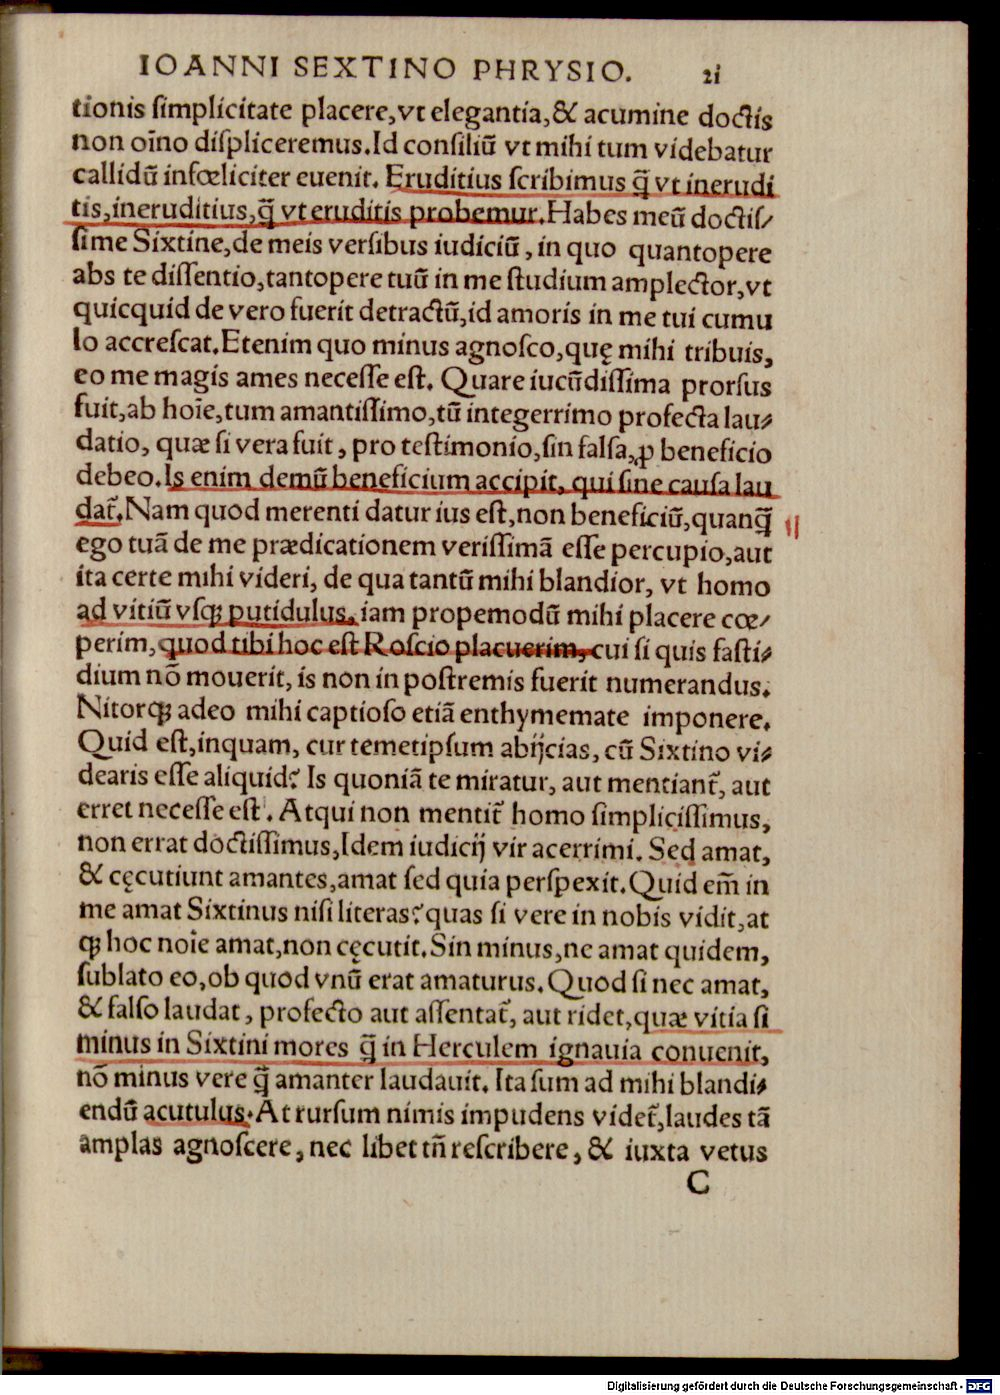 IOANNI SEXTINO PHRYSIO. 21
tionis ſimplicitate placere,vt elegantia,& acumine doctis
non oīno diſpliceremus.Id conſiliū vt mihi tum videbatur
callidū infœliciter euenit. Eruditius ſcribimus q̄ vt inerudi
tis,ineruditius,q̄ vt eruditis probemur.Habes meū doctiſ/
ſime Sixtine,de meis verſibus iudiciū, in quo quantopere
abs te diſſentio,tantopere tuū in me ſtudium amplector,vt
quicquid de vero fuerit detractū,id amoris in me tui cumu
lo accreſcat.Etenim quo minus agnoſco,quę mihi tribuis,
eo me magis ames neceſſe eſt. Quare iucūdiſſima prorſus
fuit,ab hoīe,tum amantiſſimo,tū integerrimo profecta lau/
datio, quæ ſi vera fuit, pro teſtimonio,ſin falſa,ꝓ beneficio
debeo.Is enim demū beneficium accipit, qui ſine cauſa lau
dat̃.Nam quod merenti datur ius eſt,non beneficiū,quanq̄
ego tuā de me prædicationem veriſſimā eſſe percupio,aut
ita certe mihi videri, de qua tantū mihi blandior, vt homo
ad vitiū vſqꝫ putidulus, iam propemodū mihi placere cœ/
perim,quod tibi hoc eſt Roſcio placuerim, cui ſi quis faſti/
dium nō mouerit, is non in poſtremis fuerit numerandus.
Nitorqꝫ adeo mihi captioſo etiā enthymemate imponere.
Quid eſt,inquam, cur temetipſum abijcias, cū Sixtino vi/
dearis eſſe aliquid? Is quoniā te miratur, aut mentiant̃, aut
erret neceſſe eſt. Atqui non mentit̃ homo ſimpliciſſimus,
non errat doctiſſimus,Idem iudicij vir acerrimi. Sed amat,
& cęcutiunt amantes,amat ſed quia perſpexit.Quid em̄ in
me amat Sixtinus niſi literas?quas ſi vere in nobis vidit,at
qꝫ hoc noīe amat,non cęcutit.Sin minus,ne amat quidem,
ſublato eo,ob quod vnū erat amaturus.Quod ſi nec amat,
& falſo laudat, profecto aut aſſentat̃, aut ridet,quæ vitia ſi
minus in Sixtini mores q̄ in Herculem ignauia conuenit,
nō minus vere q̄ amanter laudauit. Ita ſum ad mihi blandi/
endū acutulus.At rurſum nimis impudens videt̃,laudes tā
amplas agnoſcere, nec libet tn̄ reſcribere, & iuxta vetus
C
Digitalisierung gefördert durch die Deutsche Forschungsgemeinschaft - DFG